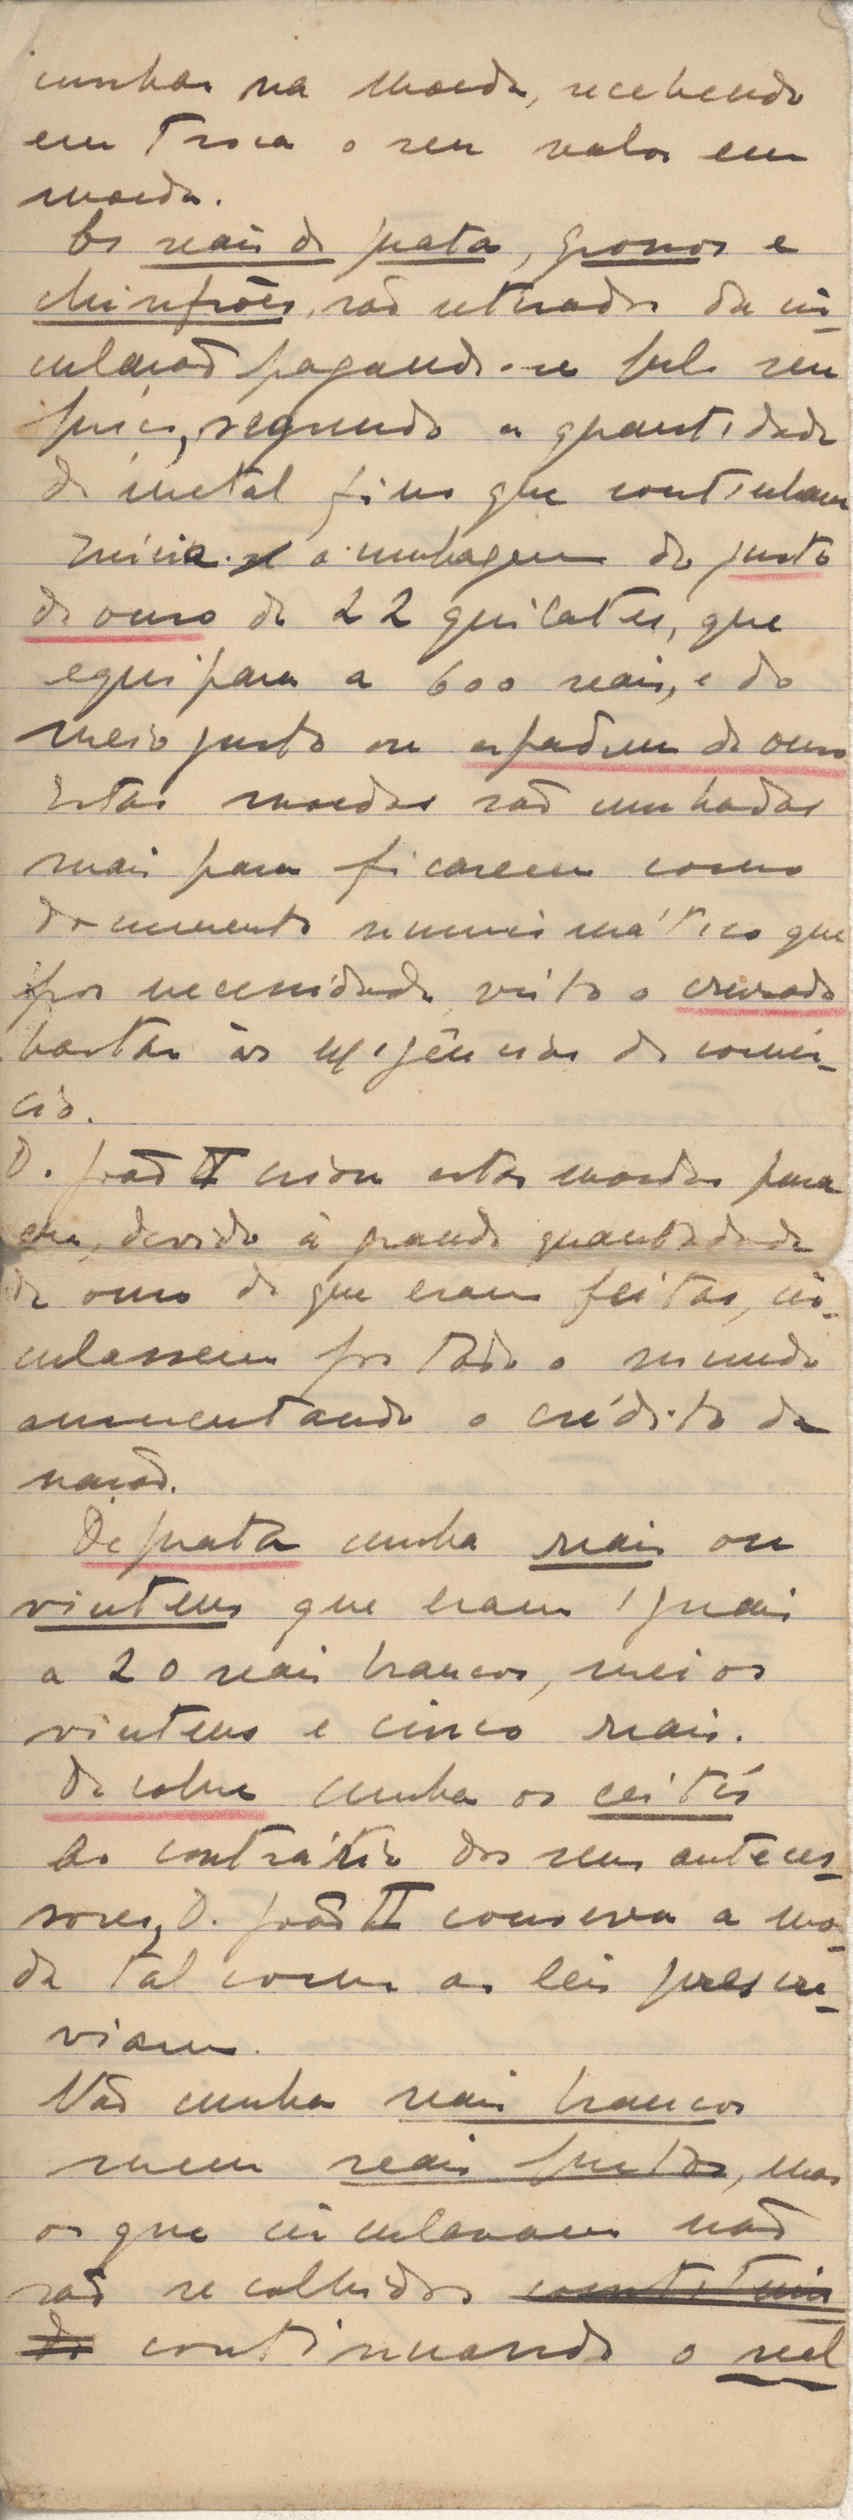 cunhar na moeda, recebendo
em troca o seu valor em
moeda.
Os reais de prata, grossos e
chinfrões, são retirados da cir-
culação pagando-se pelo seu
preço, segundo a quantidade
de metal fino que continham
Inicia-se a cunhagem do justo
de ouro de 22 quilates, que
equipara a 600 reais, e do
meio justo ou espadim de ouro
Estas moedas são cunhadas
mais para ficarem como
documento numismático que
por necessidade, visto o cruzado
bastar às exigências do comér-
cio.
D. João II criou estas moedas para
que, devido à grande quantidade
de ouro de que eram feitas, cir-
culassem por todo o mundo
aumentando o crédito da
nação.
De prata cunha reais ou
vintens que eram iguais
a 20 reais brancos, meios
vintens e cinco reais.
De cobre cunha os ceitis
Ao contrário dos seus anteces-
sores, D. João II conserva a mo-
da tal como as leis prescre-
viam.
Não cunha reais brancos
nem reais pretos, mas
os que circulavam não
são recolhidos constituin
do continuando o real